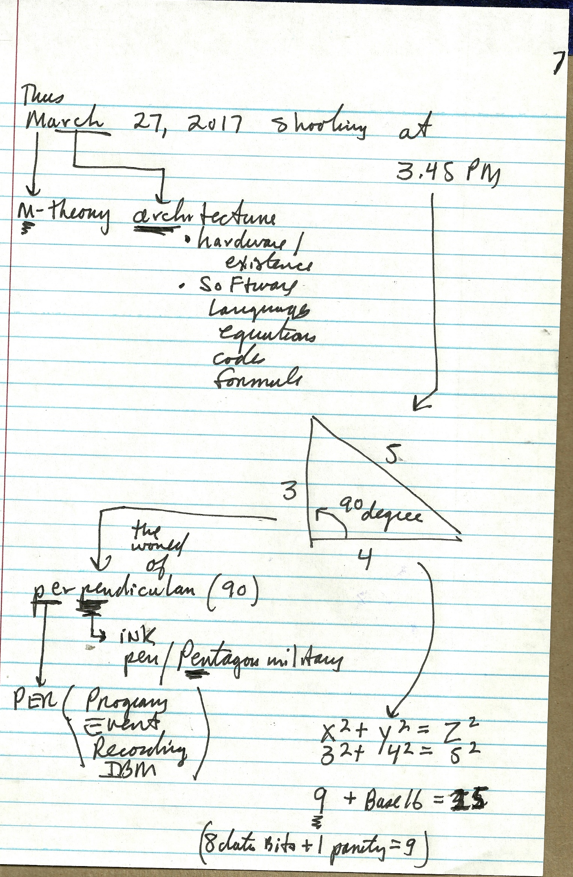 7
Thus
March 27, 2017 shooting at
3.45 PM
M-theory architecture
• hardware/
existence
• Software
Language
equations
codes
formula
5
3
90 degree
4
the
world
of
perpendicular (90)
INK
pen/Pentagon military
PER (Program
Event
Recording
IBM)
x² + y² = z²
3² + 4² = 5²
9 + Base16 = 25
(8 data Bits + 1 parity = 9)